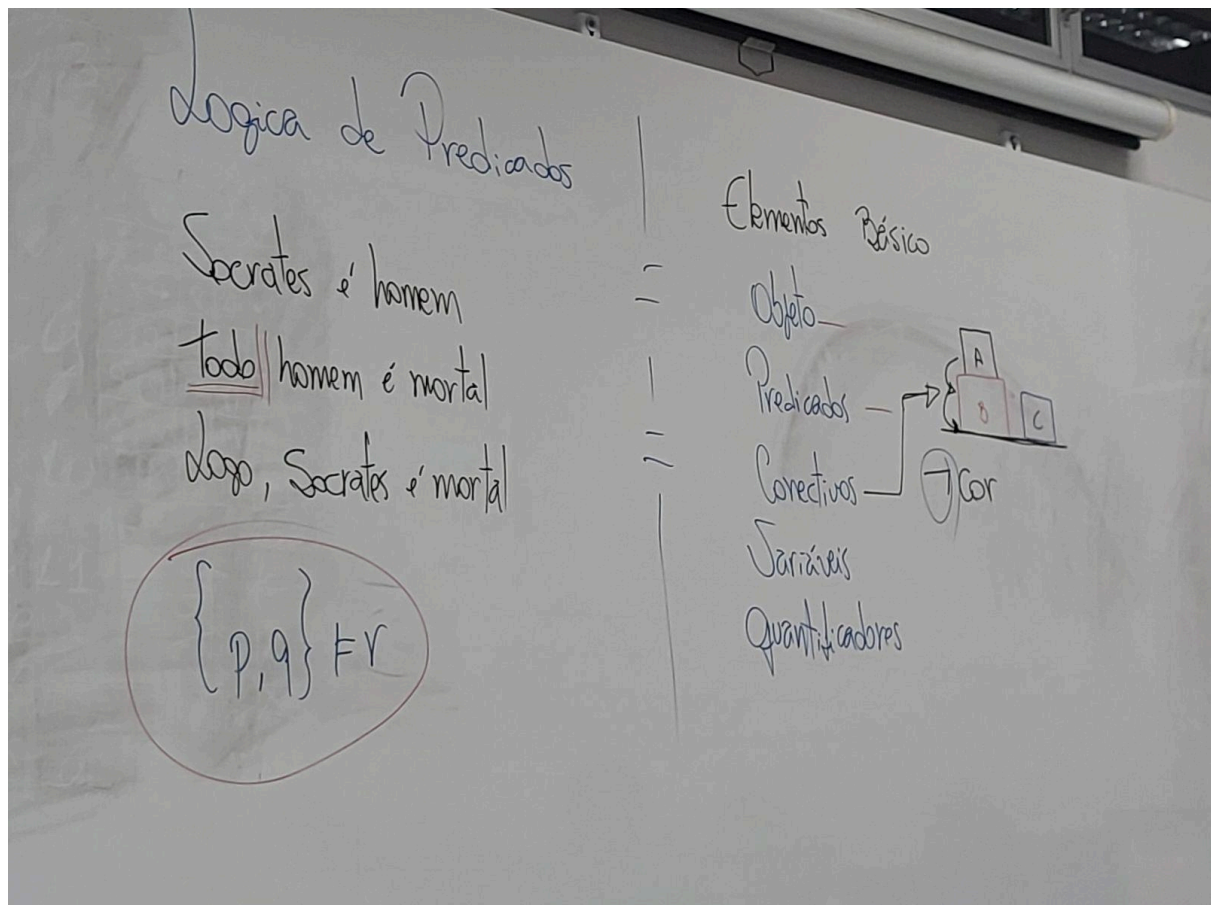 Logica de Predicados
Socrates é homem
Todo homem é mortal
Logo, Socrates é mortal
{p, q} ⊨ r
Elementos Básico
Objeto
Predicados
Conectivos
Variáveis
Quantificadores
A
B
C
¬Cor